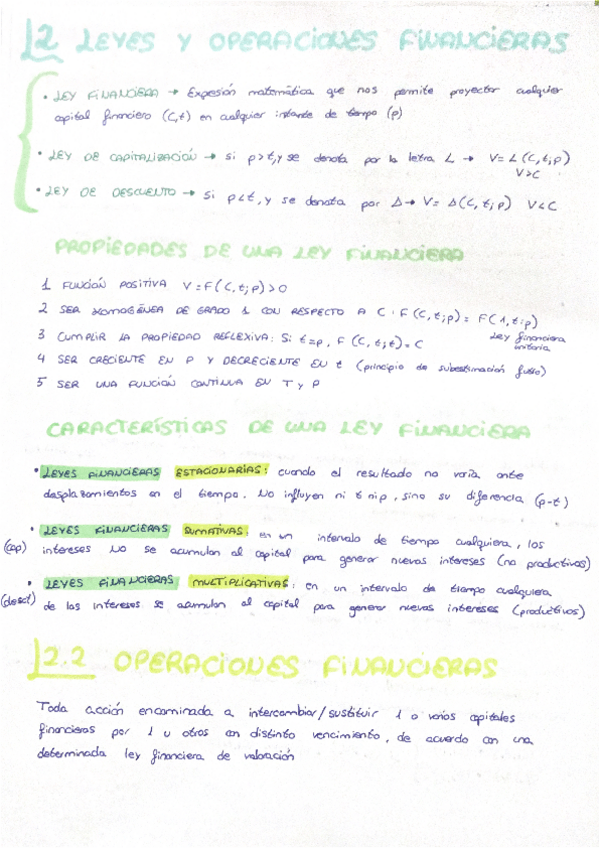 2 LEYES Y OPERACIONES FINANCIERAS
• LEY FINANCIERA → Expresión matemática que nos permite proyectar cualquier
capital financiero (C,t) en cualquier instante de tiempo (p)
• LEY DE CAPITALIZACIÓN → si p>t, y se denota por la letra L → V = L (C, t; p)
V>C
• LEY DE DESCUENTO → si p<t, y se denota por Δ → V = Δ(C, t; p) V<C
PROPIEDADES DE UNA LEY FINANCIERA
1 FUNCIÓN POSITIVA V = F (C, t; p) > 0
2 SER HOMOGÉNEA DE GRADO 1 CON RESPECTO A C : F (C, t; p) = F(1, t; p)
Ley financiera
unitaria
3 CUMPLIR LA PROPIEDAD REFLEXIVA: Si t=p, F (C, t; t) = C
4 SER CRECIENTE EN P Y DECRECIENTE EN t (principio de subestimación futuro)
5 SER UNA FUNCIÓN CONTINUA EN T y P
CARACTERÍSTICAS DE UNA LEY FINANCIERA
• LEYES FINANCIERAS ESTACIONARIAS: cuando el resultado no varía ante
desplazamientos en el tiempo. No influyen ni t ni p, sino su diferencia (p-t)
• LEYES FINANCIERAS SUMATIVAS: en un intervalo de tiempo cualquiera, los
(cap) intereses NO se acumulan al capital para generar nuevos intereses (no productivos)
• LEYES FINANCIERAS MULTIPLICATIVAS: en un intervalo de tiempo cualquiera
(desct) de los intereses se acumulan al capital para generar nuevos intereses (productivos)
2.2 OPERACIONES FINANCIERAS
Toda acción encaminada a intercambiar/sustituir 1 o varios capitales
financieros por 1 u otros con distinto vencimiento, de acuerdo con una
determinada ley financiera de valoración